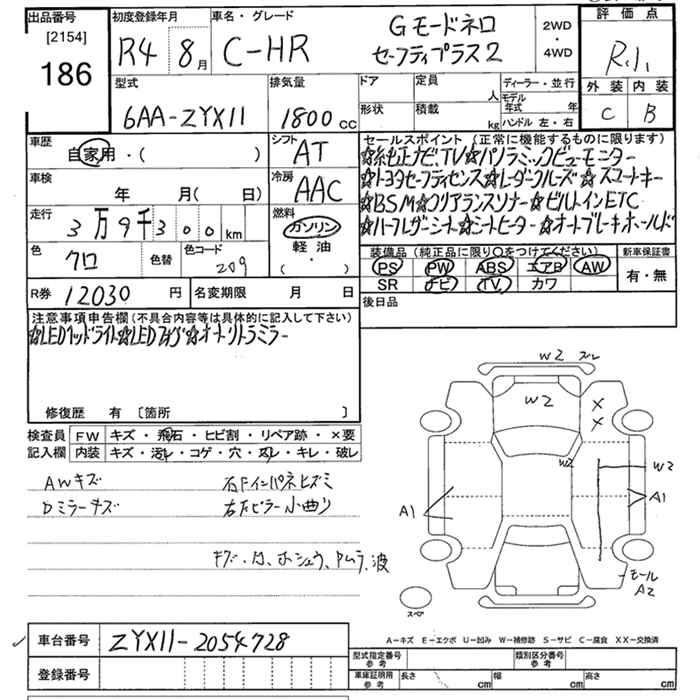 出品番号
[2154]
186
初度登録年月
R4 8月
車名・グレード
C-HR
Gモードネロ
セーフティプラス2
2WD
・
4WD
評価点
R.1.
外装 内装
C B
型式
6AA-ZYX11
排気量
1800cc
ドア 定員 人
形状 積載 kg
ディーラー・並行
モデル年式 年
ハンドル 左・右
車歴
自家用・( )
シフト
AT
車検
年 月(日)
冷房
AAC
走行
3万9千300km
燃料
ガソリン
軽油
・
( )
色
クロ
色替
色コード
209
R券 12030円
名変期限 月 日
セールスポイント (正常に機能するものに限ります)
☆純正ナビ,TV☆パノラミックビューモニター
☆トヨタセーフティセンス☆レーダクルーズ☆スマートキー
☆BSM☆クリアランスソナー☆ビルトインETC
☆ハーフレザーシート☆シートヒーター☆オートブレーキホールド
装備品 (純正品に限り○をつけてください)
PS PW ABS エアB AW
SR ナビ TV カワ
新車保証書
有・無
後日品
注意事項申告欄(不具合内容等は具体的に記入して下さい)
☆LEDヘッドライト☆LEDフォグ☆オートリトラミラー
修復歴 有 [箇所 ]
検査員
記入欄
FW キズ・飛石・ヒビ割・リペア跡・×要
内装 キズ・汚レ・コゲ・穴・スレ・キレ・破レ
AWキズ
Dミラーキズ
右Fインパネヒズミ
右Fピラー小曲り
キズ・凹、ホシュウ、ヤムラ、波
W2 スレ
W2
X
X
W2
W2
A1
A1
モール
A2
スペア
車台番号 ZYX11-2054728
登録番号
A-キズ E-エクボ U-凹み W-補修跡 S-サビ C-腐食 XX-交換済
型式指定番号
参考
類別区分番号
参考
車庫証明用
参考
長さ cm 幅 cm 高さ cm